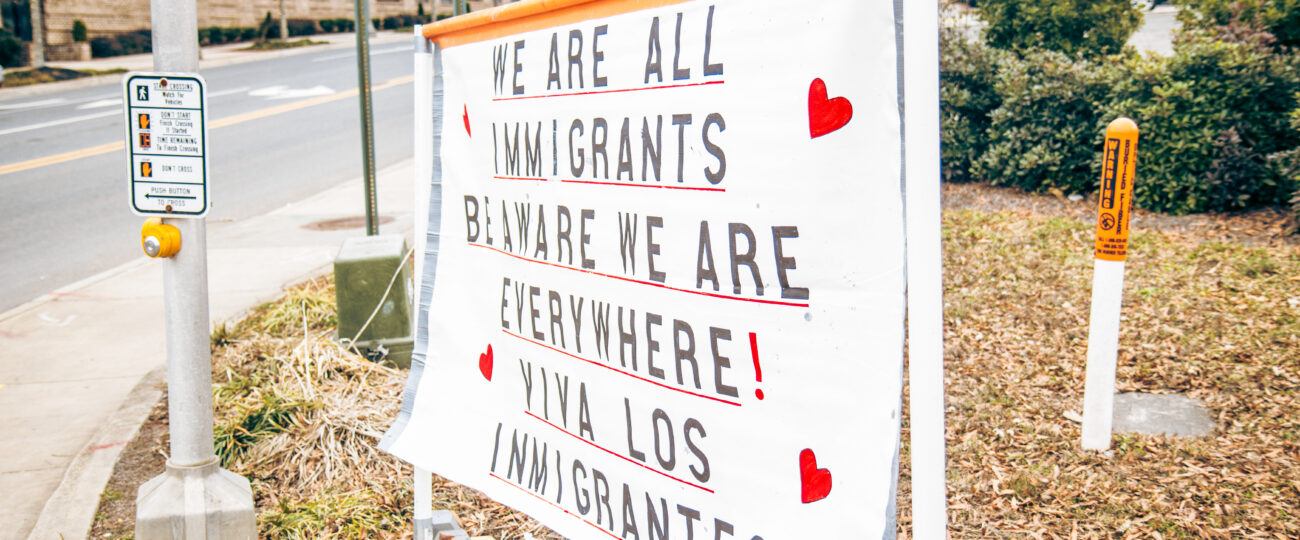 START CROSSING
Watch For
Vehicles
DON'T START
Finish Crossing
If Started
TIME REMAINING
To Finish Crossing
DON'T CROSS
PUSH BUTTON
TO CROSS
WE ARE ALL
IMMIGRANTS
BEAWARE WE ARE
EVERYWHERE!
VIVA LOS
INMIGRANTES
WARNING